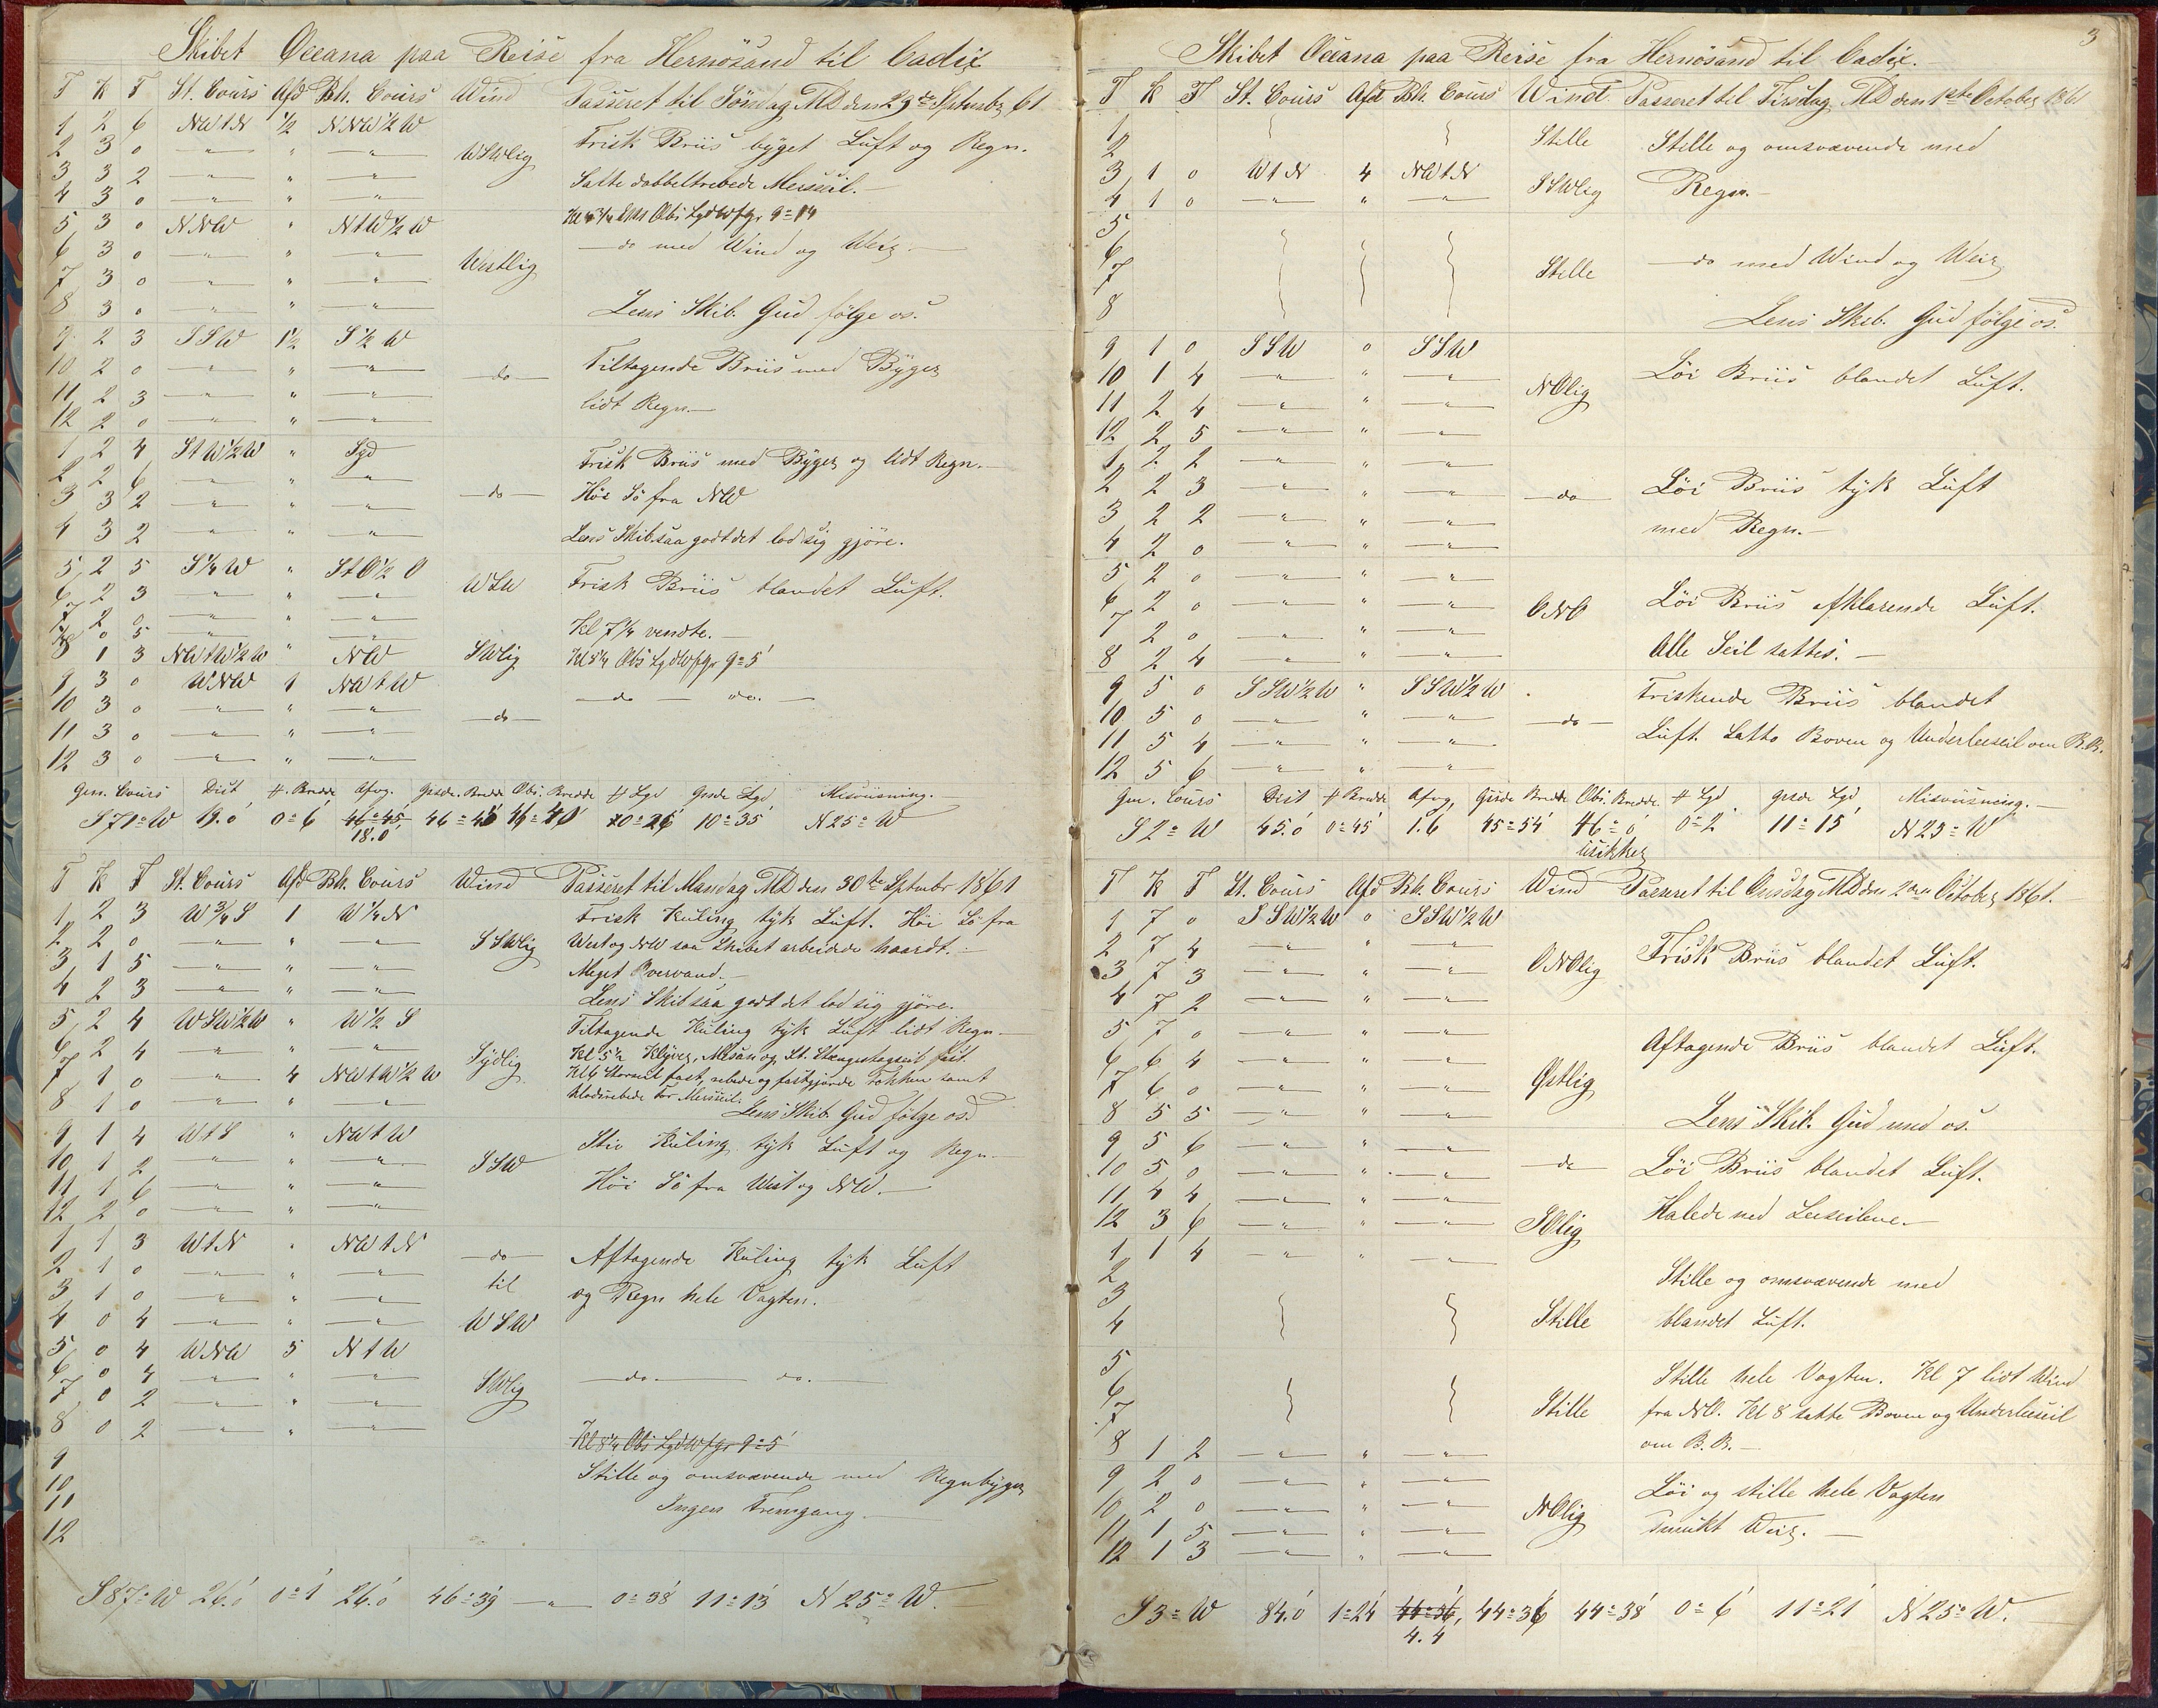 Skibet Oceana paa Reise fra Hernösand til Cadix
T K F St. Cours Afd Bh. Cours Wind Passeret til Söndag MD den 29de Septembr 61
1 2 6 NWtN ½ NNW½W
2 3 0 " " " WSWlig Frisk Briis byget Luft og Regn.
3 3 2 " " " Satte dobbeltrebede Mersseil.
4 3 0 " " "
5 3 0 NNW " NtW½W Kl 4¾ EM Obs Lgd W f Gr 9°14
6 3 0 " " " Westlig do med Wind og Weir.
7 3 0 " " "
8 3 0 " " " Lens Skib. Gud fölge os.
9 2 3 SSW 1½ S½W
10 2 0 " " " do Tiltagende Briis med Byger
11 2 3 " " " lidt Regn.
12 2 0 " " "
1 2 4 StW½W " Syd Frisk Briis med Byger og lidt Regn.
2 2 6 " " "
3 3 2 " " " do Höi Sö fra NW
4 3 2 " " " Lens Skib saa godt det lod sig gjöre.
5 2 5 S¼W " StO½O WSW Frisk Briis blandet Luft.
6 2 3 " " "
7 2 0 " " " Kl 7¼ vendte.
0 5 " "
8 1 3 NWtW½W " NW SWlig Kl 5¼ Obs Lgd W f Gr 9°5'
9 3 0 WNW 1 NWtW do do.
10 3 0 " " " do
11 3 0 " " "
12 3 0 " " "
Gen. Cours Dist f. Brede Afvg. Gisde. Brede Obs. Bredde f Lgd Gisde Lgd Misviisning.
S71°W 19.0 0°6' 46°45' 46°40 46°40' 0°26' 10°35' N25°W
18.0
T K F St. Cours Afd Bh. Cours Wind Passeret til Mandag MD den 30te Septmbr 1861
1 2 3 W¾S 1 W¼N Frisk Kuling tyk Luft. Höi Sö fra
2 2 0 " " " SSWlig West og NW saa Skibet arbeidede haardt.
3 1 5 " " " Meget Overvand.
4 2 3 " " " Lens Skib saa godt det lod sig gjöre.
5 2 4 WSW½W " W½S Tiltagende Kuling tyk Luft lidt Regn
6 2 4 " " " Sydlig Kl 5½ Klyver, Mesan og St. Stængestagseil fast
7 1 0 " 4 NWtW½W Kl 6 Storseil fast, rebede og fastgjorde Fokken samt
8 1 0 " " " klodsrebede For Mersseil.
Lens Skib. Gud fölge os.
9 1 4 WtS " NWtW Stiv Kuling tyk Luft og Regn
10 1 2 " " " SSW
11 1 6 " " " Höi Sö fra West og NW.
12 2 0 " " "
1 1 3 WtN " NWtN do Aftagende Kuling tyk Luft
2 1 0 " " " til
3 1 0 " " " og Regn hele Vagten.
4 0 4 " " " WSW
5 0 4 WNW 5 NtW
6 0 4 " " " SWlig do do.
7 0 2 " " "
8 0 2 " " "
Kl 8¼ Obs Lgd W f gr 9°5'
9
10 Stille og omsvævende med Regnbyger
11 Ingen Fremgang
12
S87°W 26.0 0°1' 26.0 46°39 " 0°38' 11°13 N25°W.
3
Skibet Oceana paa Reise fra Hernösand til Cadix.
T K F St. Cours Afd Bh. Cours Wind Passeret til Tirsdag MD den 1ste October 1861
1 Stille Stille og omsvævende med
2
3 1 0 WtN 4 NWtN SSWlig Regn.
4 1 0 " " "
5
6 Stille do med Wind og Weir
7
8 Lens Skib. Gud fölge os.
9 1 0 SSW 0 SSW
10 1 4 " " " NOlig Löi Briis blandet Luft.
11 2 4 " " "
12 2 5 " " "
1 2 2 " " "
2 2 3 " " " do Löi Briis tyk Luft
3 2 2 " " " med Regn.
4 2 0 " " "
5 2 0 " " "
6 2 0 " " " ONO Löi Briis afklarende Luft.
7 2 0 " " "
8 2 4 " " " Alle Seil sattes.
9 5 0 SSW½W " SSW½W Friskende Briis blandet
10 5 0 " " " do
11 5 4 " " " Luft. Satte Boven og Underleeseil om B.B.
12 5 6 " " "
Gen. Cours Dist f Brede Afvg. Gisde Brede Obs. Bredde f Lgd Gisde Lgd Misviisning.
S2°W 45.0 0°45' 1.6 45°54' 46°0' 0°2' 11°15' N23°W
usikker
T K F St. Cours Afd Bh. Cours Wind Passeret til Onsdag MD den 2den October 1861.
1 7 0 SSW½W 0 SSW½W
2 7 4 " " " ONOlig Frisk Briis blandet Luft.
3 7 3 " " "
4 7 2 " " "
5 7 0 " " " Aftagende Briis blandet Luft.
6 6 4 " " " Östlig
7 6 0 " " "
8 5 5 " " " Lens Skib. Gud med os.
9 5 6 " " " do Löi Briis blandet Luft.
10 5 0 " " "
11 4 4 " " " SOlig Halede ned Leeseilene.
12 3 6 " " "
1 1 4 " " "
2 Stille og omsvævende med
3 Stille blandet Luft.
4
5 Stille hele Vagten. Kl 7 lidt Wind
6 Stille fra NO. Kl 8 satte Boven og Underleeseil
7 om B.B.
8 1 2 " " "
9 2 0 " " " Löi og stille hele Vagten
10 2 0 " " " NOlig
11 1 5 " " " smukt Weir.
12 1 3 " " "
S3°W 84.0 1°24' 44°36', 44°36 44°38' 0°6' 11°21' N25°W.
4.4